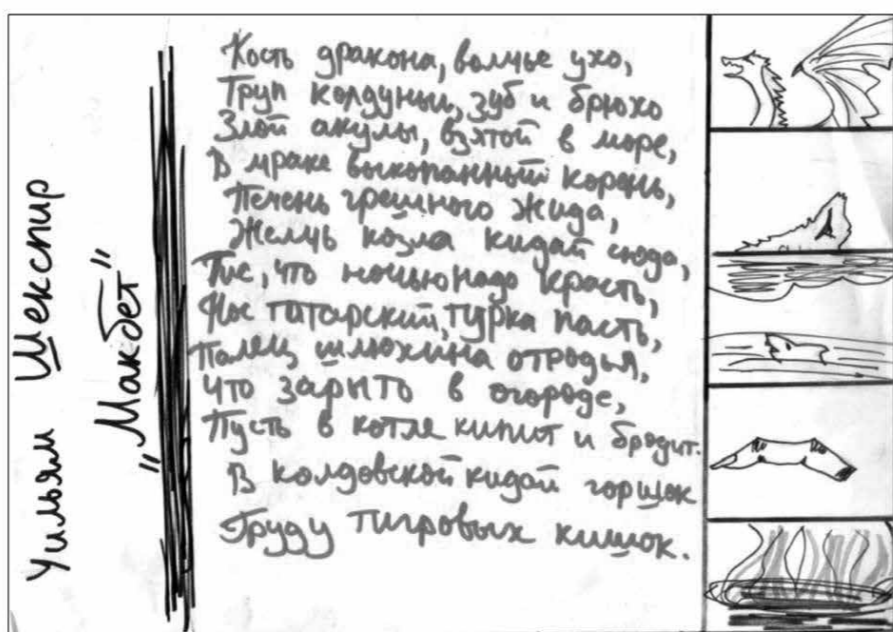 Уильям Шекспир
"Макбет"
Кость дракона, волчье ухо,
Труп колдуньи, зуб и брюхо
Злой акулы, взятой в море,
В мраке выкопанный корень,
Печень грешного жида,
Желчь козла кидай сюда,
Тис, что ночью надо красть,
Нос татарский, турка пасть,
Палец шлюхина отродья,
Что зарыто в огороде,
Пусть в котле кипит и бродит.
В колдовской кидай горшок
Груду тигровых кишок.